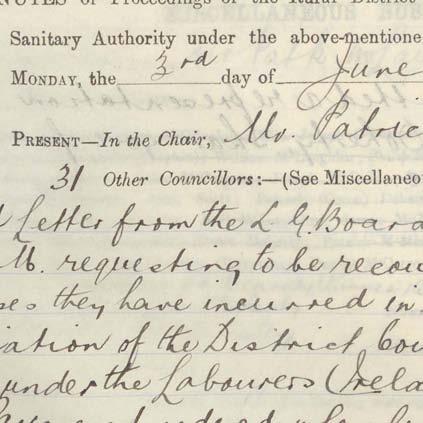 NOTES of Proceedings of the Rural District
Sanitary Authority under the above-mentione
MONDAY, the 3rd day of June
PRESENT—In the Chair, Mr. Patric
31 Other Councillors:—(See Miscellaneo
Letter from the L G Board
M. requesting to be recou
ses they have incurred in
iation of the District Cou
under the Labourers (Irela